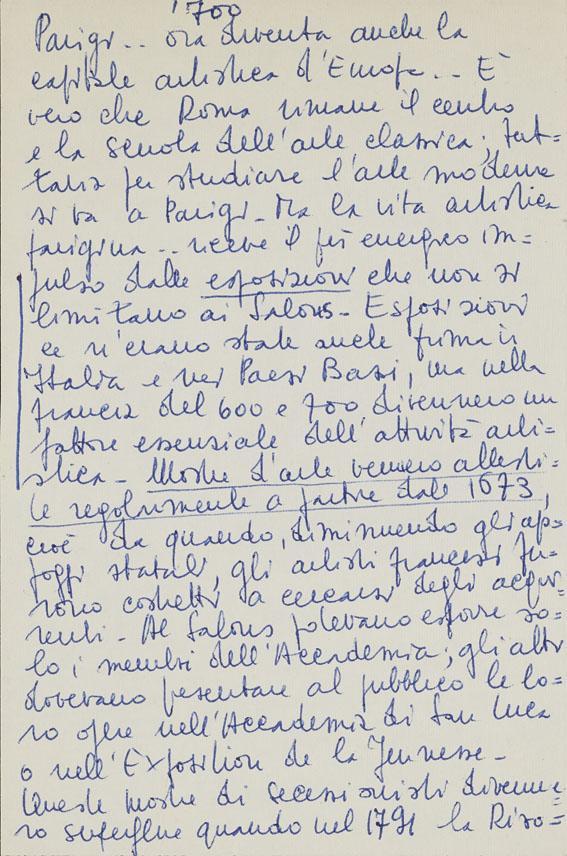 '700
Parigi.. ora diventa anche la
capitale artistica d'Europa.. È
vero che Roma rimane il centro
e la scuola dell'arte classica; tut=
tavia per studiare l'arte moderna
si va a Parigi_ Ma la vita artistica
parigina.. riceve il più energico im=
pulso dalle esposizioni che non si
limitano ai Salons_ Esposizioni
ce n'erano state anche prima in
Italia e nei Paesi Bassi, ma nella
francia del 600 e 700 divennero un
fattore essenziale dell'attività arti=
stica_ Mostre d'arte vennero allesti=
te regolarmente a partire dal 1673,
cioè da quando, diminuendo gli ap=
poggi statali, gli artisti francesi fu=
rono costretti a cercarsi degli acqui=
renti_ Al Salons potevano esporre so=
lo i membri dell'Accademia; gli altri
dovevano presentare al pubblico le lo=
ro opere nell'Accademia di San Luca
o nell'Exposition de la Jeunesse_
Queste mostre di secessionisti divenne=
ro superflue quando nel 1791 la Rivo=